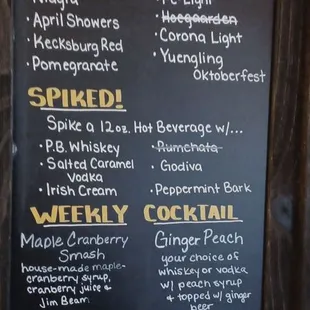 April Showers
Kecksburg Red
Pomegranate
Light
Hoegaarden
Corona Light
Yuengling
Oktoberfest
SPIKED!
Spike a 12oz. Hot Beverage w/...
P.B. Whiskey
Salted Caramel
Vodka
Irish Cream
Rumchata
Godiva
Peppermint Bark
WEEKLY COCKTAIL
Maple Cranberry
Smash
house-made maple-
cranberry syrup,
cranberry juice &
Jim Beam
Ginger Peach
your choice of
whiskey or vodka
w/ peach syrup
& topped w/ ginger
beer